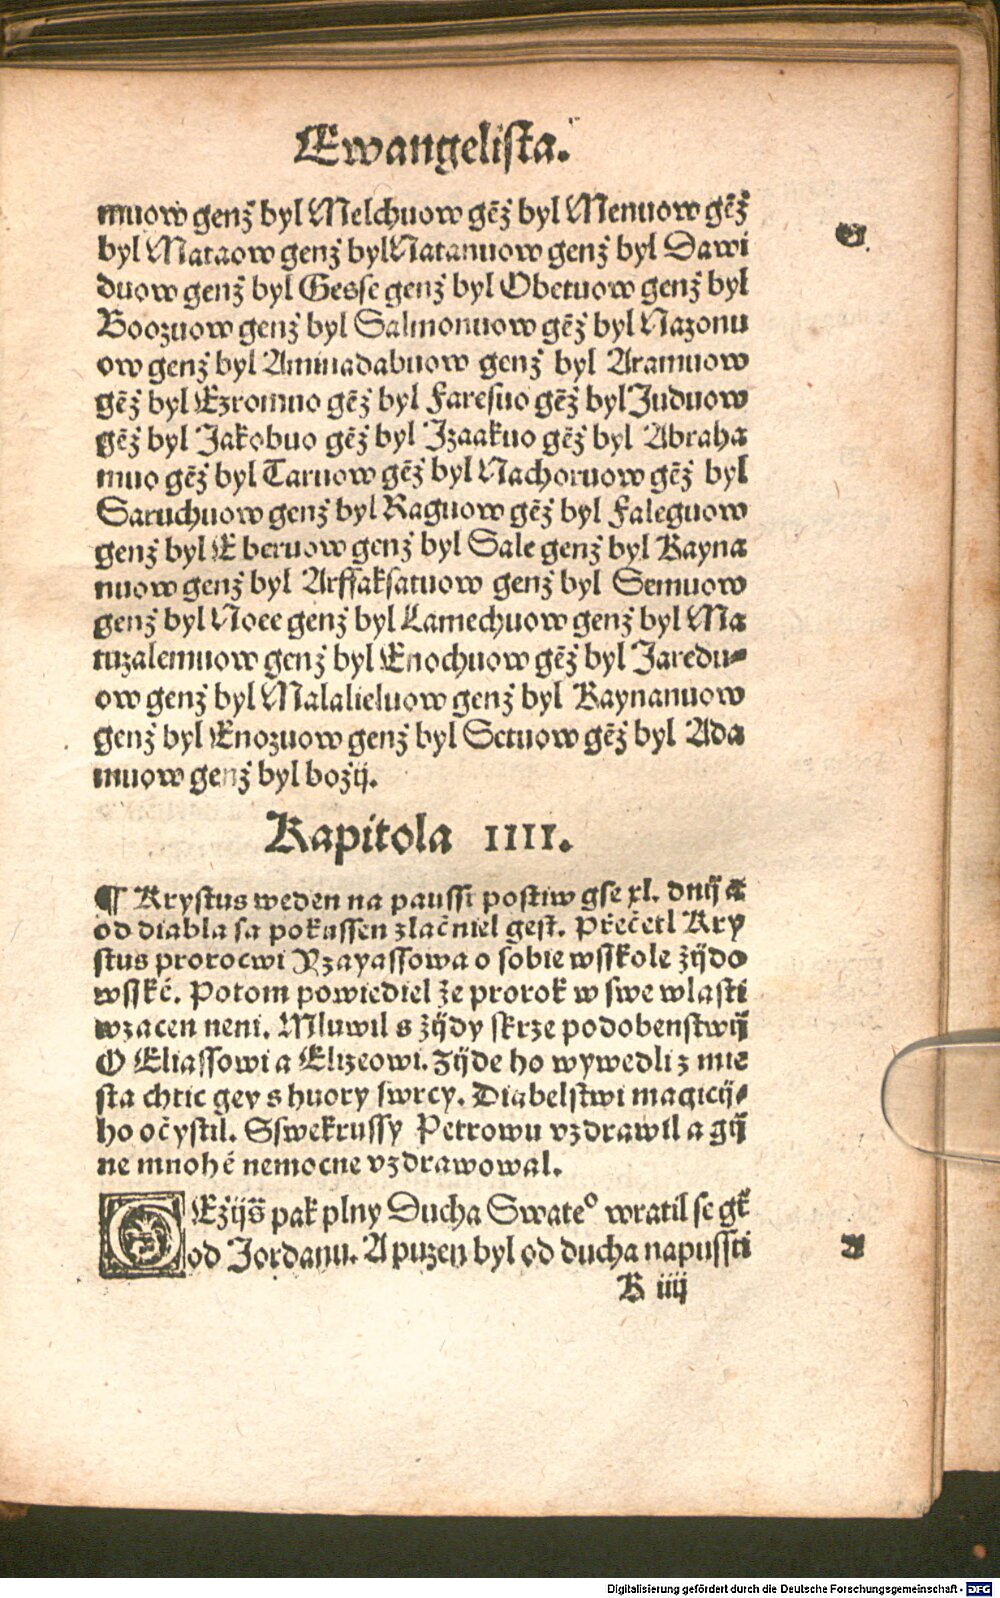 Ewangelista.
muow genż byl Melchuow gēż byl Menuow gēż
byl Mataow genż byl Natanuow genż byl Dawi
duow genż byl Gesse genż byl Obetuow genż byl
Boozuow genż byl Salmonuow gēż byl Nazonu
ow genż byl Aminadabuow genż byl Aramuow
gēż byl Ezromuo gēż byl Faresuo gēż byl Juduow
gēż byl Jakobuo gēż byl Jzaakuo gēż byl Abraha
muo gēż byl Taruow gēż byl Nachoruow gēż byl
Saruchuow genż byl Raguow gēż byl Faleguow
genż byl Eberuow genż byl Sale genż byl Kayna
nuow genż byl Arffaksatuow genż byl Semuow
genż byl Noee genż byl Lamechuow genż byl Ma
tuzalemuow genż byl Enochuow gēż byl Jaredu-
ow genż byl Malalieluow genż byl Kaynanuow
genż byl Enozuow genż byl Setuow gēż byl Ada
muow genż byl božij.
Kapitola IIII.
¶ Krystus weden na paussi postiw gse xl. dnij a
od diabla sa pokussen zlačniel gest. Přečetl Kry
stus prorocwi Yzayassowa o sobie w sskole żijdo
wsskē. Potom powiediel że prorok w swe wlasti
wzacen neni. Mluwil s żijdy skrze podobenstwij
O Eliassowi a Elizeowi. Zijde ho wywedli z mie
sta chtic gey s huory swrcy. Diabelstwi magicij-
ho očystil. Sswekrussy Petrowu vzdrawil a gij
ne mnohē nemocne vzdrawowal.
GEżijs̄ pak plny Ducha Swateº wratil se gt̄
od Jordanu. A puzen byl od ducha na pussti
K iiij